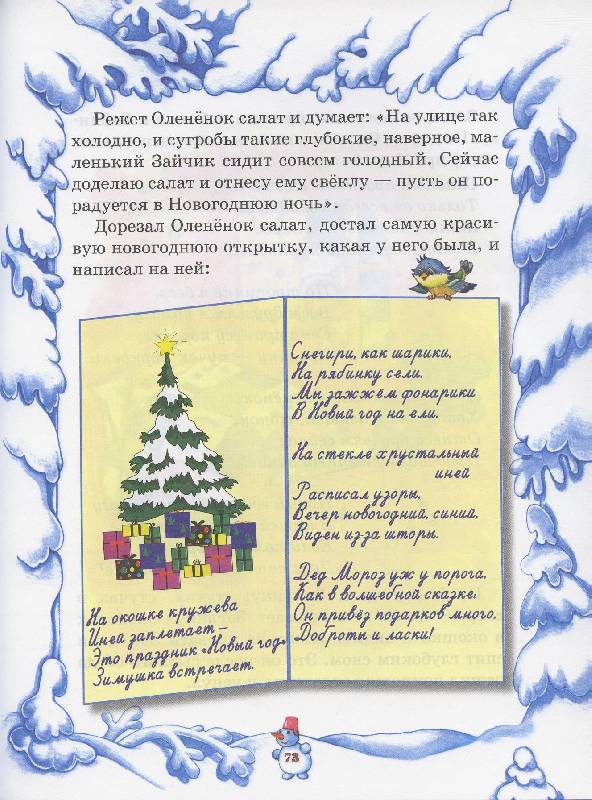 Режет Оленёнок салат и думает: «На улице так
холодно, и сугробы такие глубокие, наверное, ма-
ленький Зайчик сидит совсем голодный. Сейчас
доделаю салат и отнесу ему свёклу — пусть он по-
радуется в Новогоднюю ночь».
Дорезал Оленёнок салат, достал самую краси-
вую новогоднюю открытку, какая у него была, и
написал на ней:
На окошке кружева
Иней заплетает —
Это праздник «Новый год»
Зимушка встречает.
Снегири, как шарики,
На рябинку сели.
Мы зажжём фонарики
В Новый год на ели.
На стекле хрустальный
иней
Расписал узоры.
Вечер новогодний, синий,
Виден из-за шторы.
Дед Мороз уж у порога.
Как в волшебной сказке!
Он привёз подарков много,
Доброты и ласки!
73